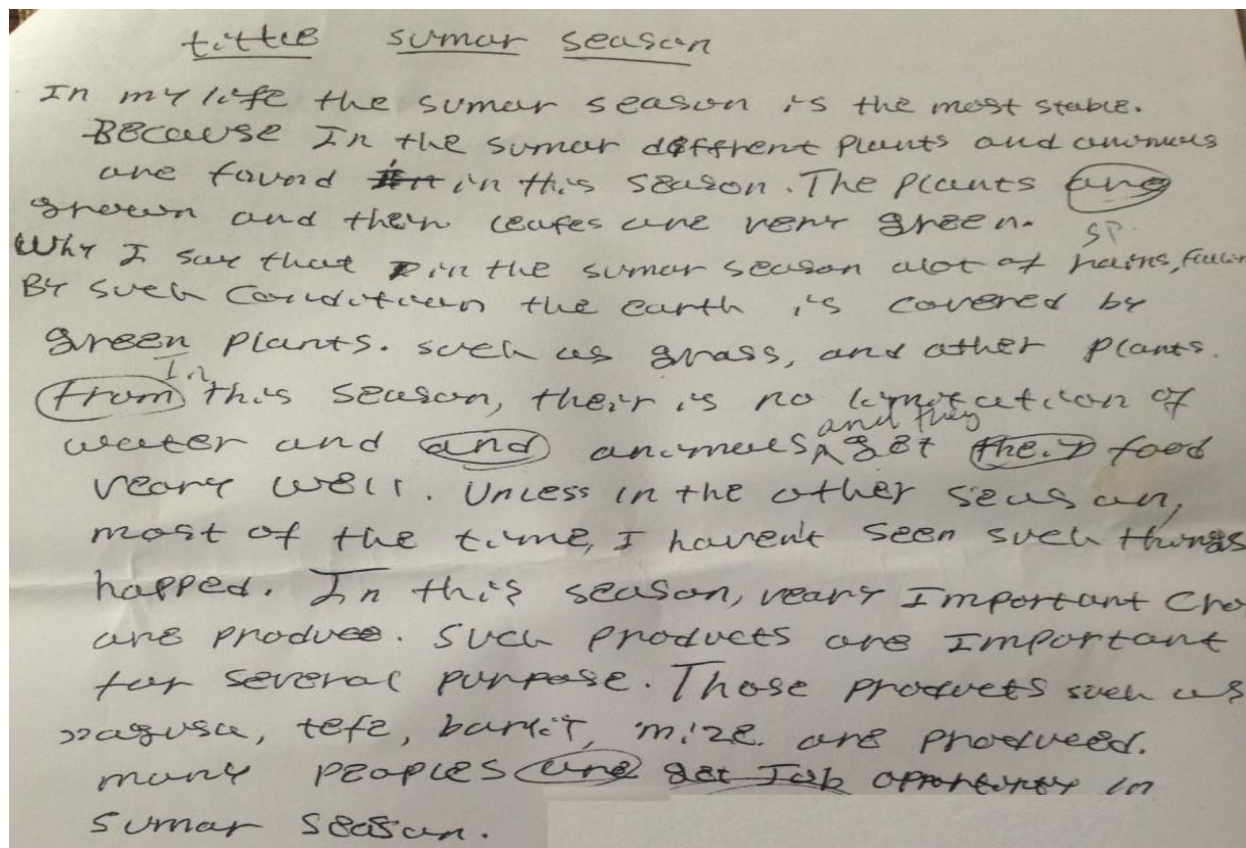 tittle sumar season
In my life the sumar season is the most stable.
Because In the sumar diffrent plants and
are favord in this season. The plants are
grown and their leafes are very green.
SP.
Why I say that in the sumar season alot of rains,
By such Condition the earth is covered by
green plants. such as grass, and other plants.
In
From this season, their is no limitation of
and they
water and and animals get their food
veary well. Unless in the other season,
most of the time, I haven't seen such things
happed. In this season, veary Important Cro
are produce. Such products are Important
for several purpose. Those products such as
ragusa, tefe, barlit, mize. are produced.
many peoples are get Job opportunity in
sumar season.